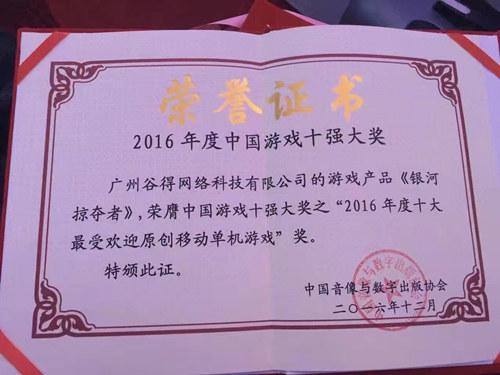 荣誉证书
2016年度中国游戏十强大奖
广州谷得网络科技有限公司的游戏产品《银河
掠夺者》,荣膺中国游戏十强大奖之“2016年度十大
最受欢迎原创移动单机游戏”奖。
特颁此证。
中国音像与数字出版协会
二〇一六年十二月